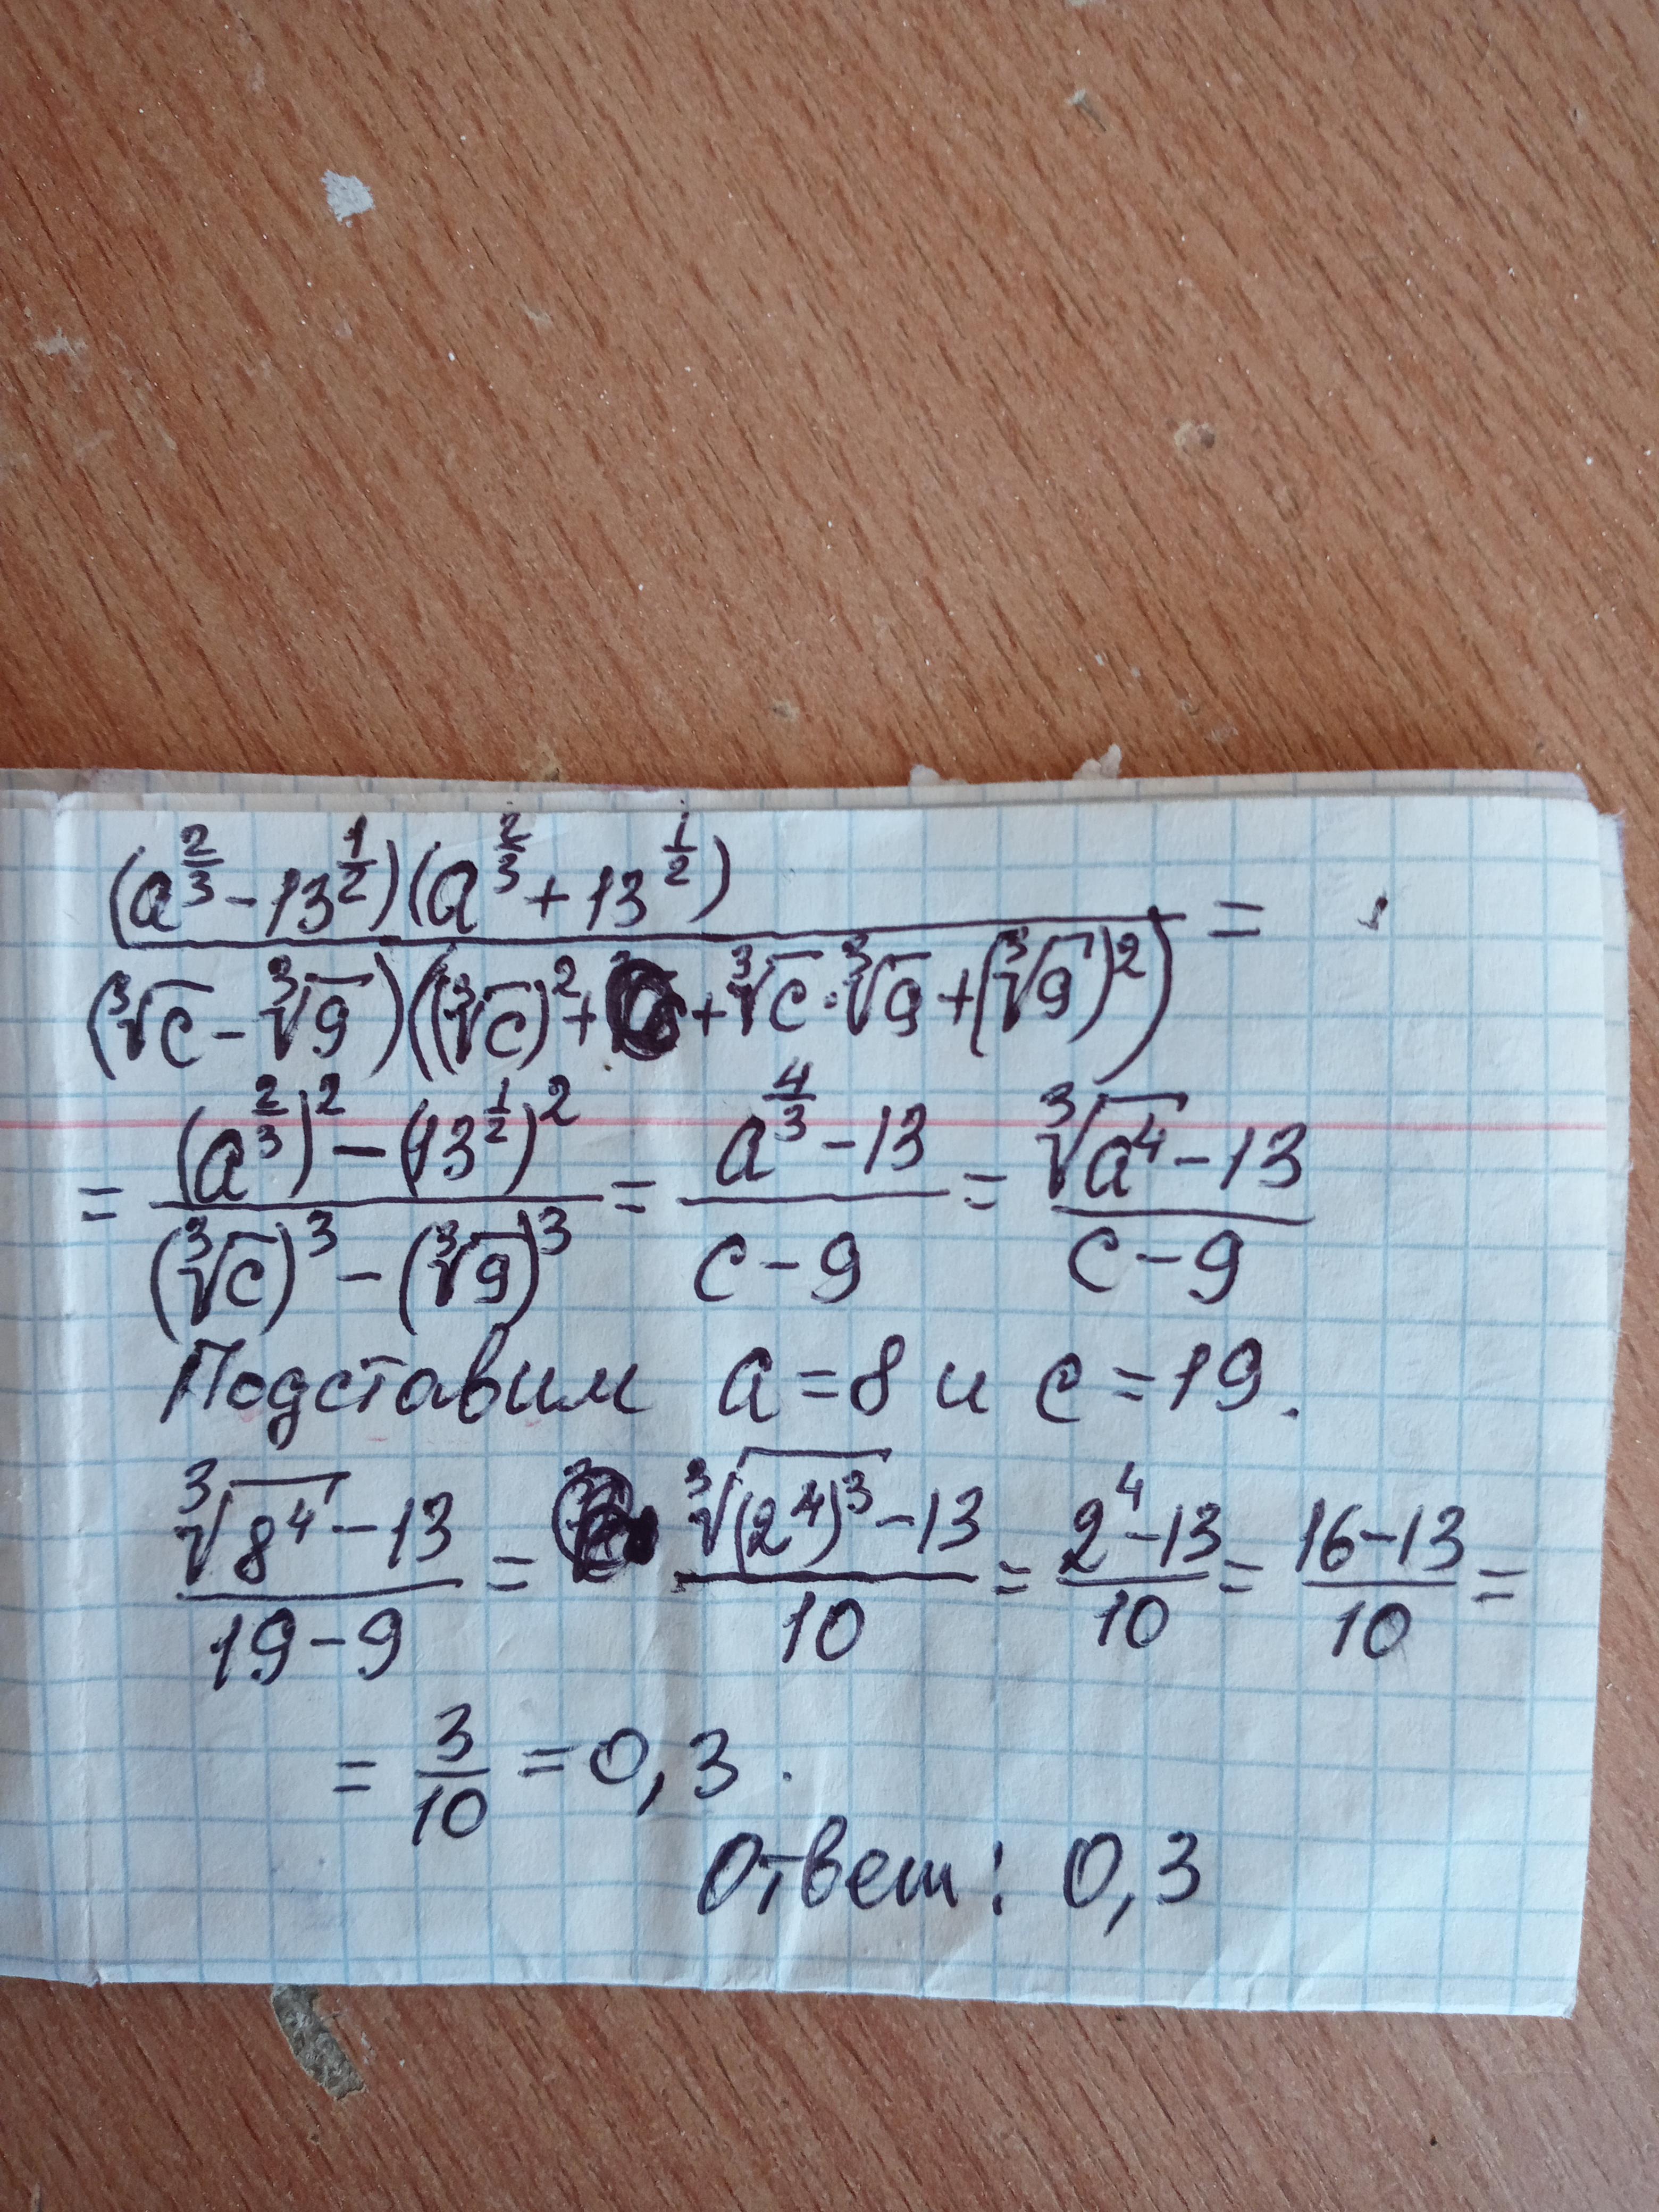 (a^{2/3} - 13^{1/2})(a^{2/3} + 13^{1/2}) / (∛c - ∛9)((∛c)² + + ∛c · ∛9 + (∛9)²) =
= ((a^{2/3})² - (13^{1/2})²) / ((∛c)³ - (∛9)³) = (a^{4/3} - 13) / (c - 9) = (∛a⁴ - 13) / (c - 9)
Подставим a = 8 и c = 19.
(∛8⁴ - 13) / (19 - 9) = (∛(2⁴)³ - 13) / 10 = (2⁴ - 13) / 10 = (16 - 13) / 10 =
= 3/10 = 0,3.
Ответ: 0,3